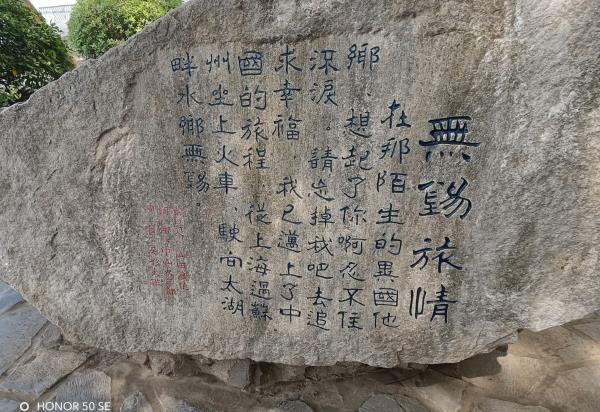 無錫旅情
在那陌生的異國他
鄉、想起了你啊忍不住
流淚。請忘掉我吧去追
求幸福 我已邁上了中
國的旅程 從上海過蘇
州坐上火車、駛向太湖
畔水鄉無錫.
HONOR 50 SE